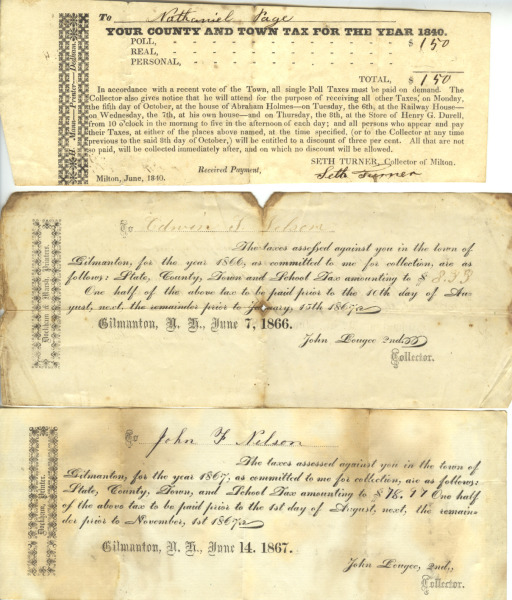 To Nathaniel Page
YOUR COUNTY AND TOWN TAX FOR THE YEAR 1840.
POLL, - - - - - - - - - $ 1 50
REAL, - - - - - - - - -
PERSONAL, - - - - - - - -
TOTAL, $ 1 50
In accordance with a recent vote of the Town, all single Poll Taxes must be paid on demand. The
Collector also gives notice that he will attend for the purpose of receiving all other Taxes, on Monday,
the fifth day of October, at the house of Abraham Holmes—on Tuesday, the 6th, at the Railway House—
on Wednesday, the 7th, at his own house—and on Thursday, the 8th, at the Store of Henry G. Durell,
from 10 o'clock in the morning to five in the afternoon of each day; and all persons who appear and pay
their Taxes, at either of the places above named, at the time specified, (or to the Collector at any time
previous to the said 8th day of October,) will be entitled to a discount of three per cent. All that are not
so paid, will be collected immediately after, and on which no discount will be allowed.
SETH TURNER, Collector of Milton.
Received Payment,
Seth Turner
Milton, June, 1840.
H. Mann, Printer—Dedham.
To Edwin S Nelson
The taxes assessed against you in the town of
Gilmanton, for the year 1866, as committed to me for collection, are as
follows: State, County, Town and School Tax amounting to $ 8.33
One half of the above tax to be paid prior to the 10th day of Au-
gust, next, the remainder prior to January, 15th 1867.
Gilmanton, N. H., June 7, 1866.
John Lougee 2nd,
Collector.
Printers.
To John F Nelson
The taxes assessed against you in the town of
Gilmanton, for the year 1867, as committed to me for collection, are as follows:
State, County, Town, and School Tax amounting to $ 78.77 One half
of the above tax to be paid prior to the 1st day of August, next, the remain-
der prior to November, 1st 1867.
Gilmanton, N. H., June 14. 1867.
John Lougee, 2nd.,
Collector.
Printer.